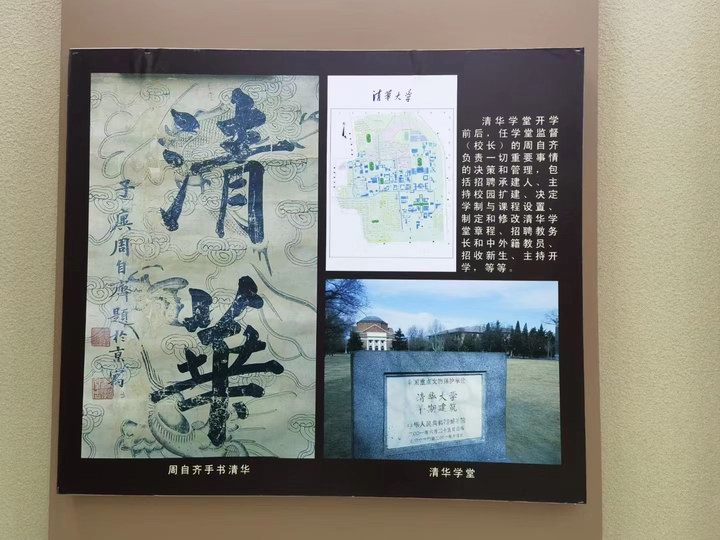 清華
子廙周自齊題於京寓
周自齐手书清华
清华大学
清华学堂开学
前后，任学堂监督
（校长）的周自齐
负责一切重要事情
的决策和管理，包
括招聘承建人、主
持校园扩建、决定
学制与课程设置、
制定和修改清华学
堂章程、招聘教务
长和中外籍教员、
招收新生、主持开
学，等等。
全国重点文物保护单位
清华大学
早期建筑
中华人民共和国国务院
清华学堂